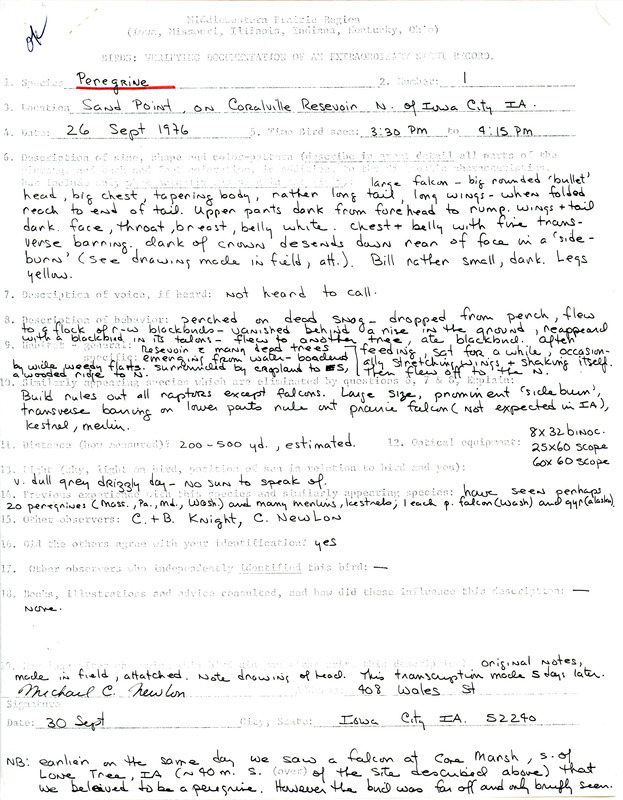 ok
Middlewestern Prairie Region
(Iowa, Missouri, Illinois, Indiana, Kentucky, Ohio)
BIRDS: VERIFYING DOCUMENTATION OF AN EXTRAORDINARY SIGHT RECORD.
1. Species Peregrine 2. Number: 1
3. Location Sand Point, on Coralville Resevoir N. of Iowa City IA.
4. Date: 26 Sept 1976 5. Time Bird seen: 3:30 PM to 4:15 PM
6. Description of size, shape and color-pattern (describe in great detail all parts of the
large falcon - big rounded 'bullet'
head, big chest, tapering body, rather long tail, long wings - when folded
reach to end of tail. Upper parts dark from forehead to rump. wings + tail
dark. face, throat, breast, belly white. Chest + belly with fine trans-
verse barring. dark of crown desends down rear of face in a 'side-
burn' (see drawing made in field, att.). Bill rather small, dark. Legs
yellow.
7. Description of voice, if heard: Not heard to call.
8. Description of behavior: perched on dead snag - dropped from perch, flew
to a flock of r-w blackbirds - vanished behind a rise in the ground, reappeard
with a blackbird in its talons - flew to another tree, ate blackbird. After
9. Habitat - general: Resevoir c many dead trees feeding, sat for a while, occasion-
specific: emerging from water - boadend ally stretching wings + shaking itself.
by wide weedy flats. surrounded by cropland to ES, Then flew off to the N.
a wooded ridge to N.
10. Similarly appearing species which are eliminated by questions 6, 7 & 8, Explain:
Build rules out all raptors except falcons. Large size, prominent 'sideburn',
transverse baring on lower parts rule out prairie falcon (not expected in IA),
kestrel, merlin.
8x32 binoc.
11. Distance (how measured)? 200-500 yd., estimated. 12. Optical equipment: 25x60 scope
60x60 scope
13. Light (sky, light on bird, position of sun in relation to bird and you):
v. dull grey drizzly day - no sun to speak of.
14. Previous experience with this species and similarly appearing species: have seen perhaps
20 peregrines (Mass., Pa., Md., Wash) and many merlins, kestrels; 1 each p. falcon (Wash) and gyr (alaska).
15. Other observers: C. + B. Knight, C. Newlon
16. Did the others agree with your identification? yes
17. Other observers who independently identified this bird: —
18. Books, illustrations and advice consulted, and how did these influence this description: —
none.
original notes,
made in field, attatched. Note drawing of head. This transcription made 5 days later.
Michael C. Newlon 408 Wales St
Signature
Date: 30 Sept City, State: Iowa City IA. 52240
NB: earlier on the same day we saw a falcon at Cone Marsh, S. of
Lone Tree, IA (~40 m. S. (over) of the site described above) that
we beleived to be a peregrine. However the bird was far off and only briefly seen.